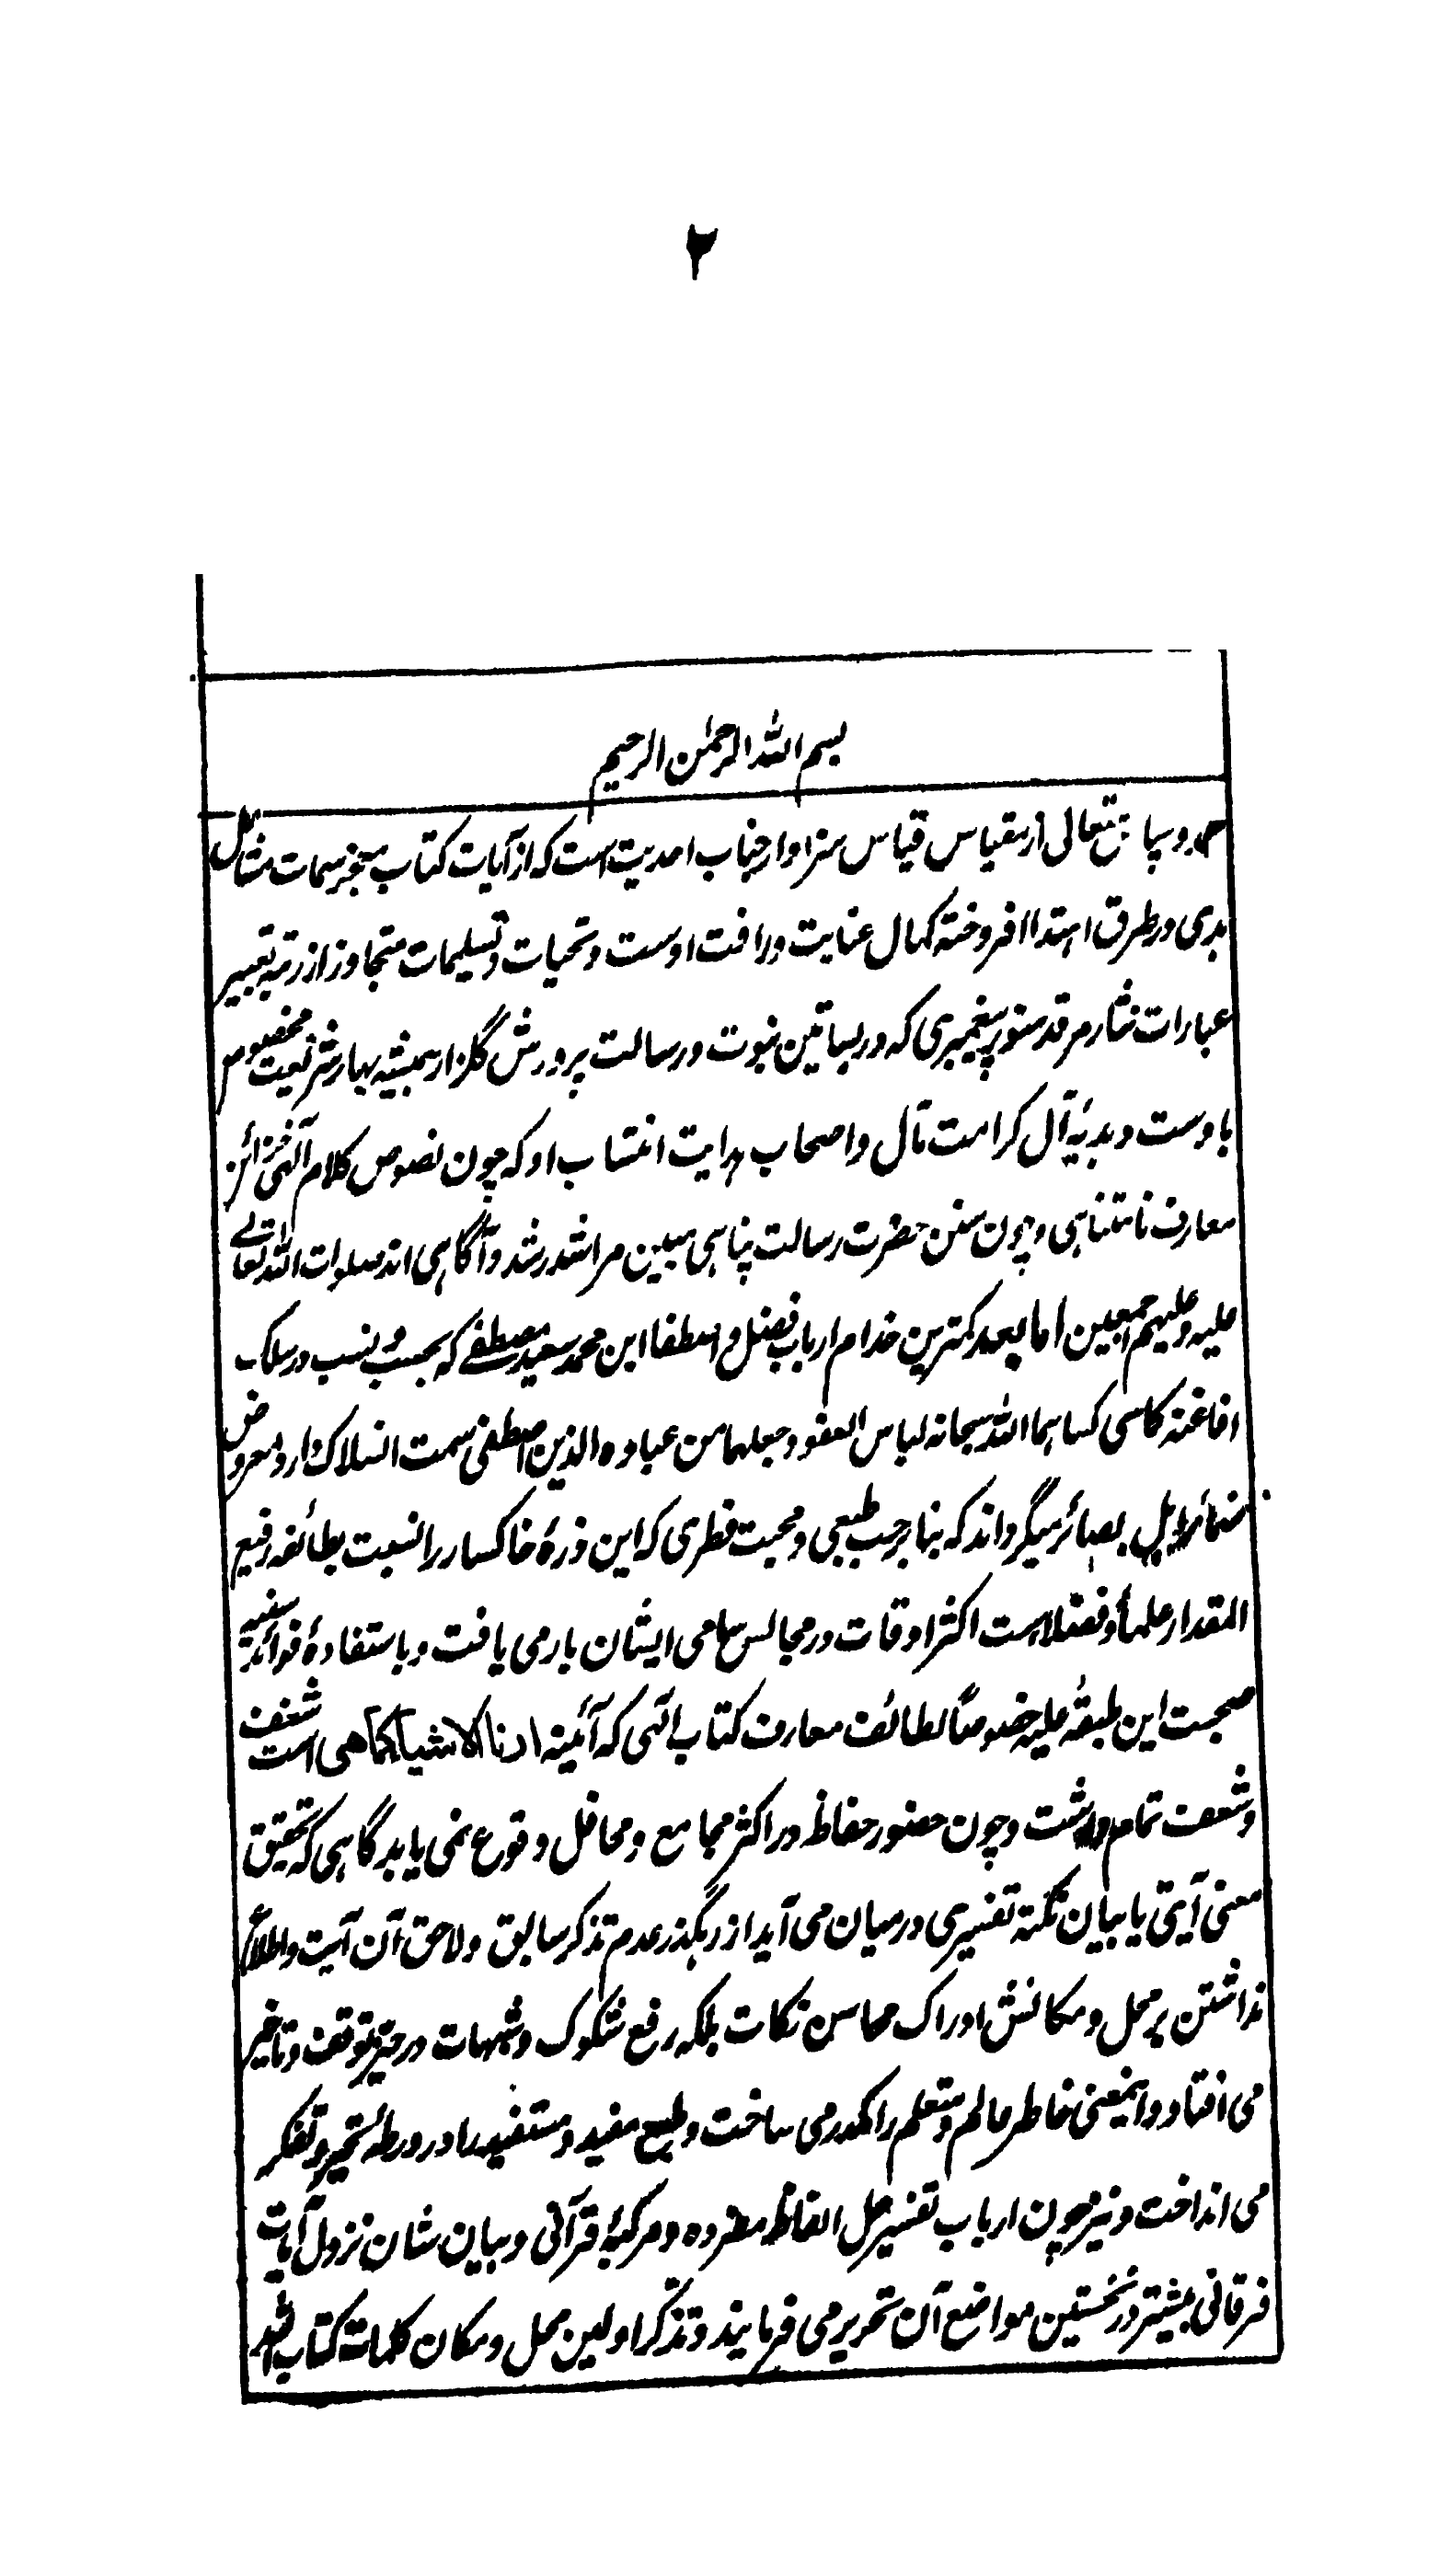 ۲
بسم الله الرحمٰن الرحیم
حمد و سپاس متعالی از مقیاس قیاس سزاوار جناب احدیت است که از آیات کتاب معجز سمات مشاعل
هدی در طرق اهتدا افروختهٔ کمال عنایت و رافت اوست و تحیات و تسلیمات متجاوز از رتبهٔ تعبیر
عبارات نثار مرقد منور پیغمبری که در بساتین نبوت و رسالت پرورش گلزار همیشه بهار شریعت مخصوص
باوست و هدیهٔ آل کرامت مآل و اصحاب هدایت انتساب او که چون نصوص کلام آلهی خزائن
معارف نامتناهی و چون سنن حضرت رسالت پناهی مبین مراشد رشد و آگاهی اند صلوات الله تعالے
علیه و علیهم اجمعین اما بعد کمترین خدام ارباب فضل و اصطفا ابن محمد سعید مصطفے که بحسب و نسب در سلک
افاغنه کاسی کساهما الله سبحانه لباس العفو و جعلهما من عباده الذین اصطفی سمت انسلاک دارد معروض
ضمائر اهل بصائر میگرداند که بنا بر حب طبیعی و محبت فطری که این ذرهٔ خاکسار را نسبت بطائفه رفیع
المقدار علما و فضلا است اکثر اوقات در مجالس سامی ایشان بار می یافت و باستفادهٔ فوائد
صحبت این طبقهٔ علیه خصوصاً لطائف معارف کتاب الٓهی که آئینه ارنا الاشیا کماهی است شغف
و شعف تمام داشت و چون حضور حفاظ در اکثر مجامع و محافل وقوع نمی یابد گاهی که تحقیق
معنی آیتی یا بیان نکتهٔ تفسیری در میان می آید از رهگذر عدم تذکر سابق و لاحق آن آیت و اطلاع
نداشتن بر محل و مکانش ادراک محاسن نکات بلکه رفع شکوک و شبهات در حیز توقف و تاخیر
می افتاد و اینمعنی خاطر عالم و متعلم را مکدر می ساخت و طبع مفید و مستفید را در ورطهٔ تحیر و تفکر
می انداخت و نیز چون ارباب تفسیر حل الفاظ مفرده و مرکبهٔ قرآنی و بیان شان نزول آیات
فرقانی بیشتر در نخستین مواضع آن تحریر می فرمایند و تذکر اولین محل و مکان کلمات کتاب